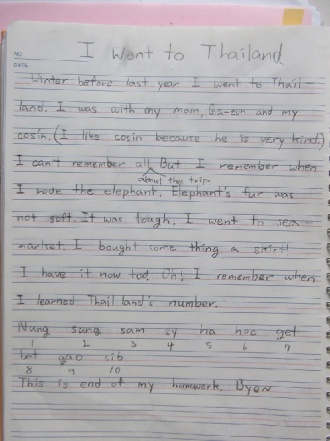 I Went to Thailand
NO.
DATE
Winter before last year I went to Thail-
land. I was with my mom, Ga-eun and my
cosin. (I like cosin because he is very kind.)
I can't remember all. But I remember when
about the trip
I rove the elephant. Elephant's fur was
not soft. It was tough. I went to sea-
market. I bought some thing a skirt!
I have it now too. Oh! I remember when
I learned Thail land's number.
Nung sung sam sy ha hoc get
1 2 3 4 5 6 7
bat gao sib
8 9 10
This is end of my homework. Bye~